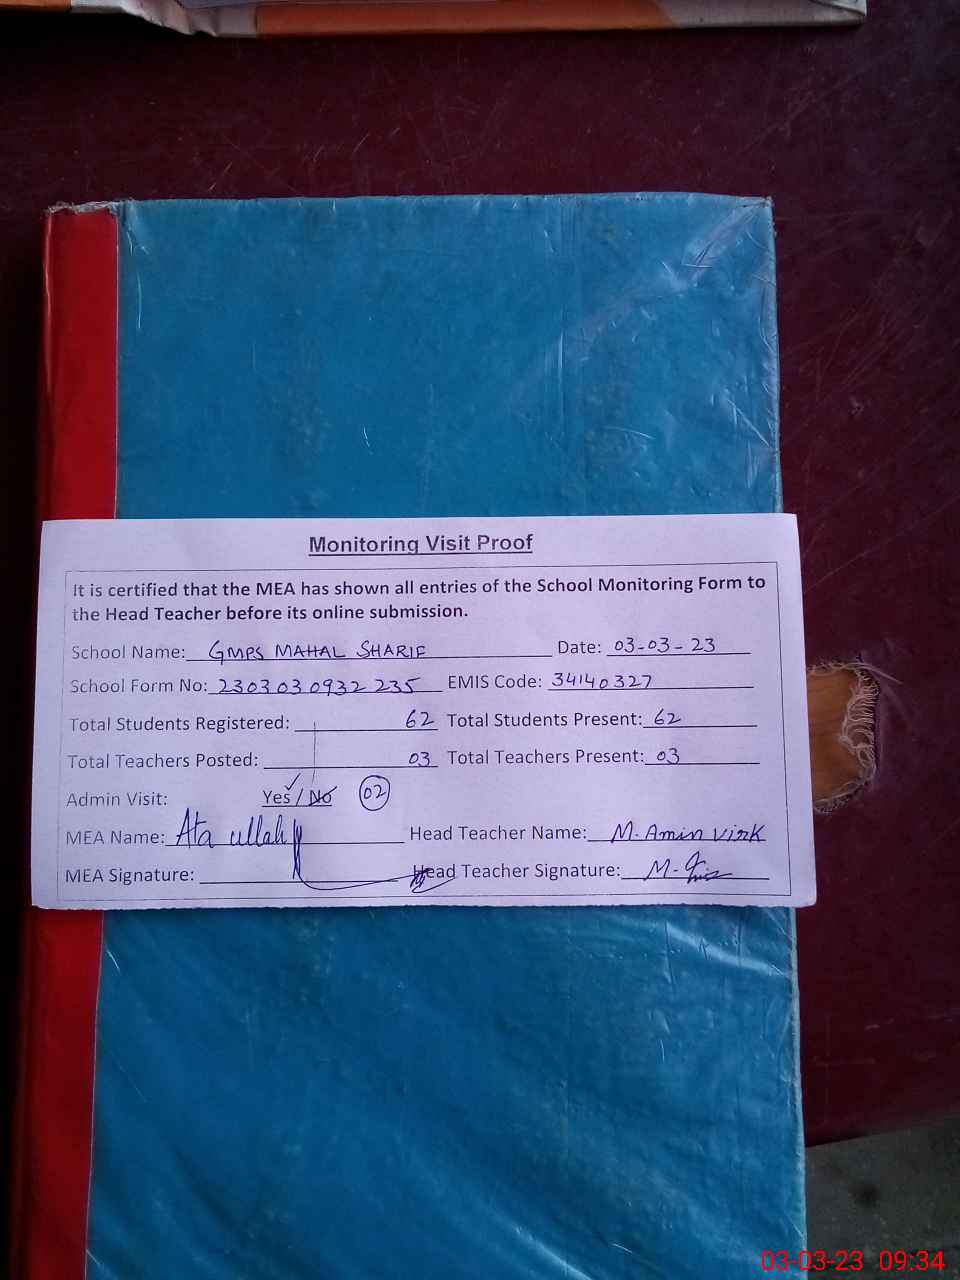 Monitoring Visit Proof
It is certified that the MEA has shown all entries of the School Monitoring Form to
the Head Teacher before its online submission.
School Name: GMPS MAHAL SHARIF Date: 03-03-23
School Form No: 2303030932235 EMIS Code: 34140327
Total Students Registered: 62 Total Students Present: 62
Total Teachers Posted: 03 Total Teachers Present: 03
Admin Visit: Yes / No 02
MEA Name: Ata ullah Head Teacher Name: M. Amin virk
MEA Signature: Head Teacher Signature: M.
03-03-23 09:34